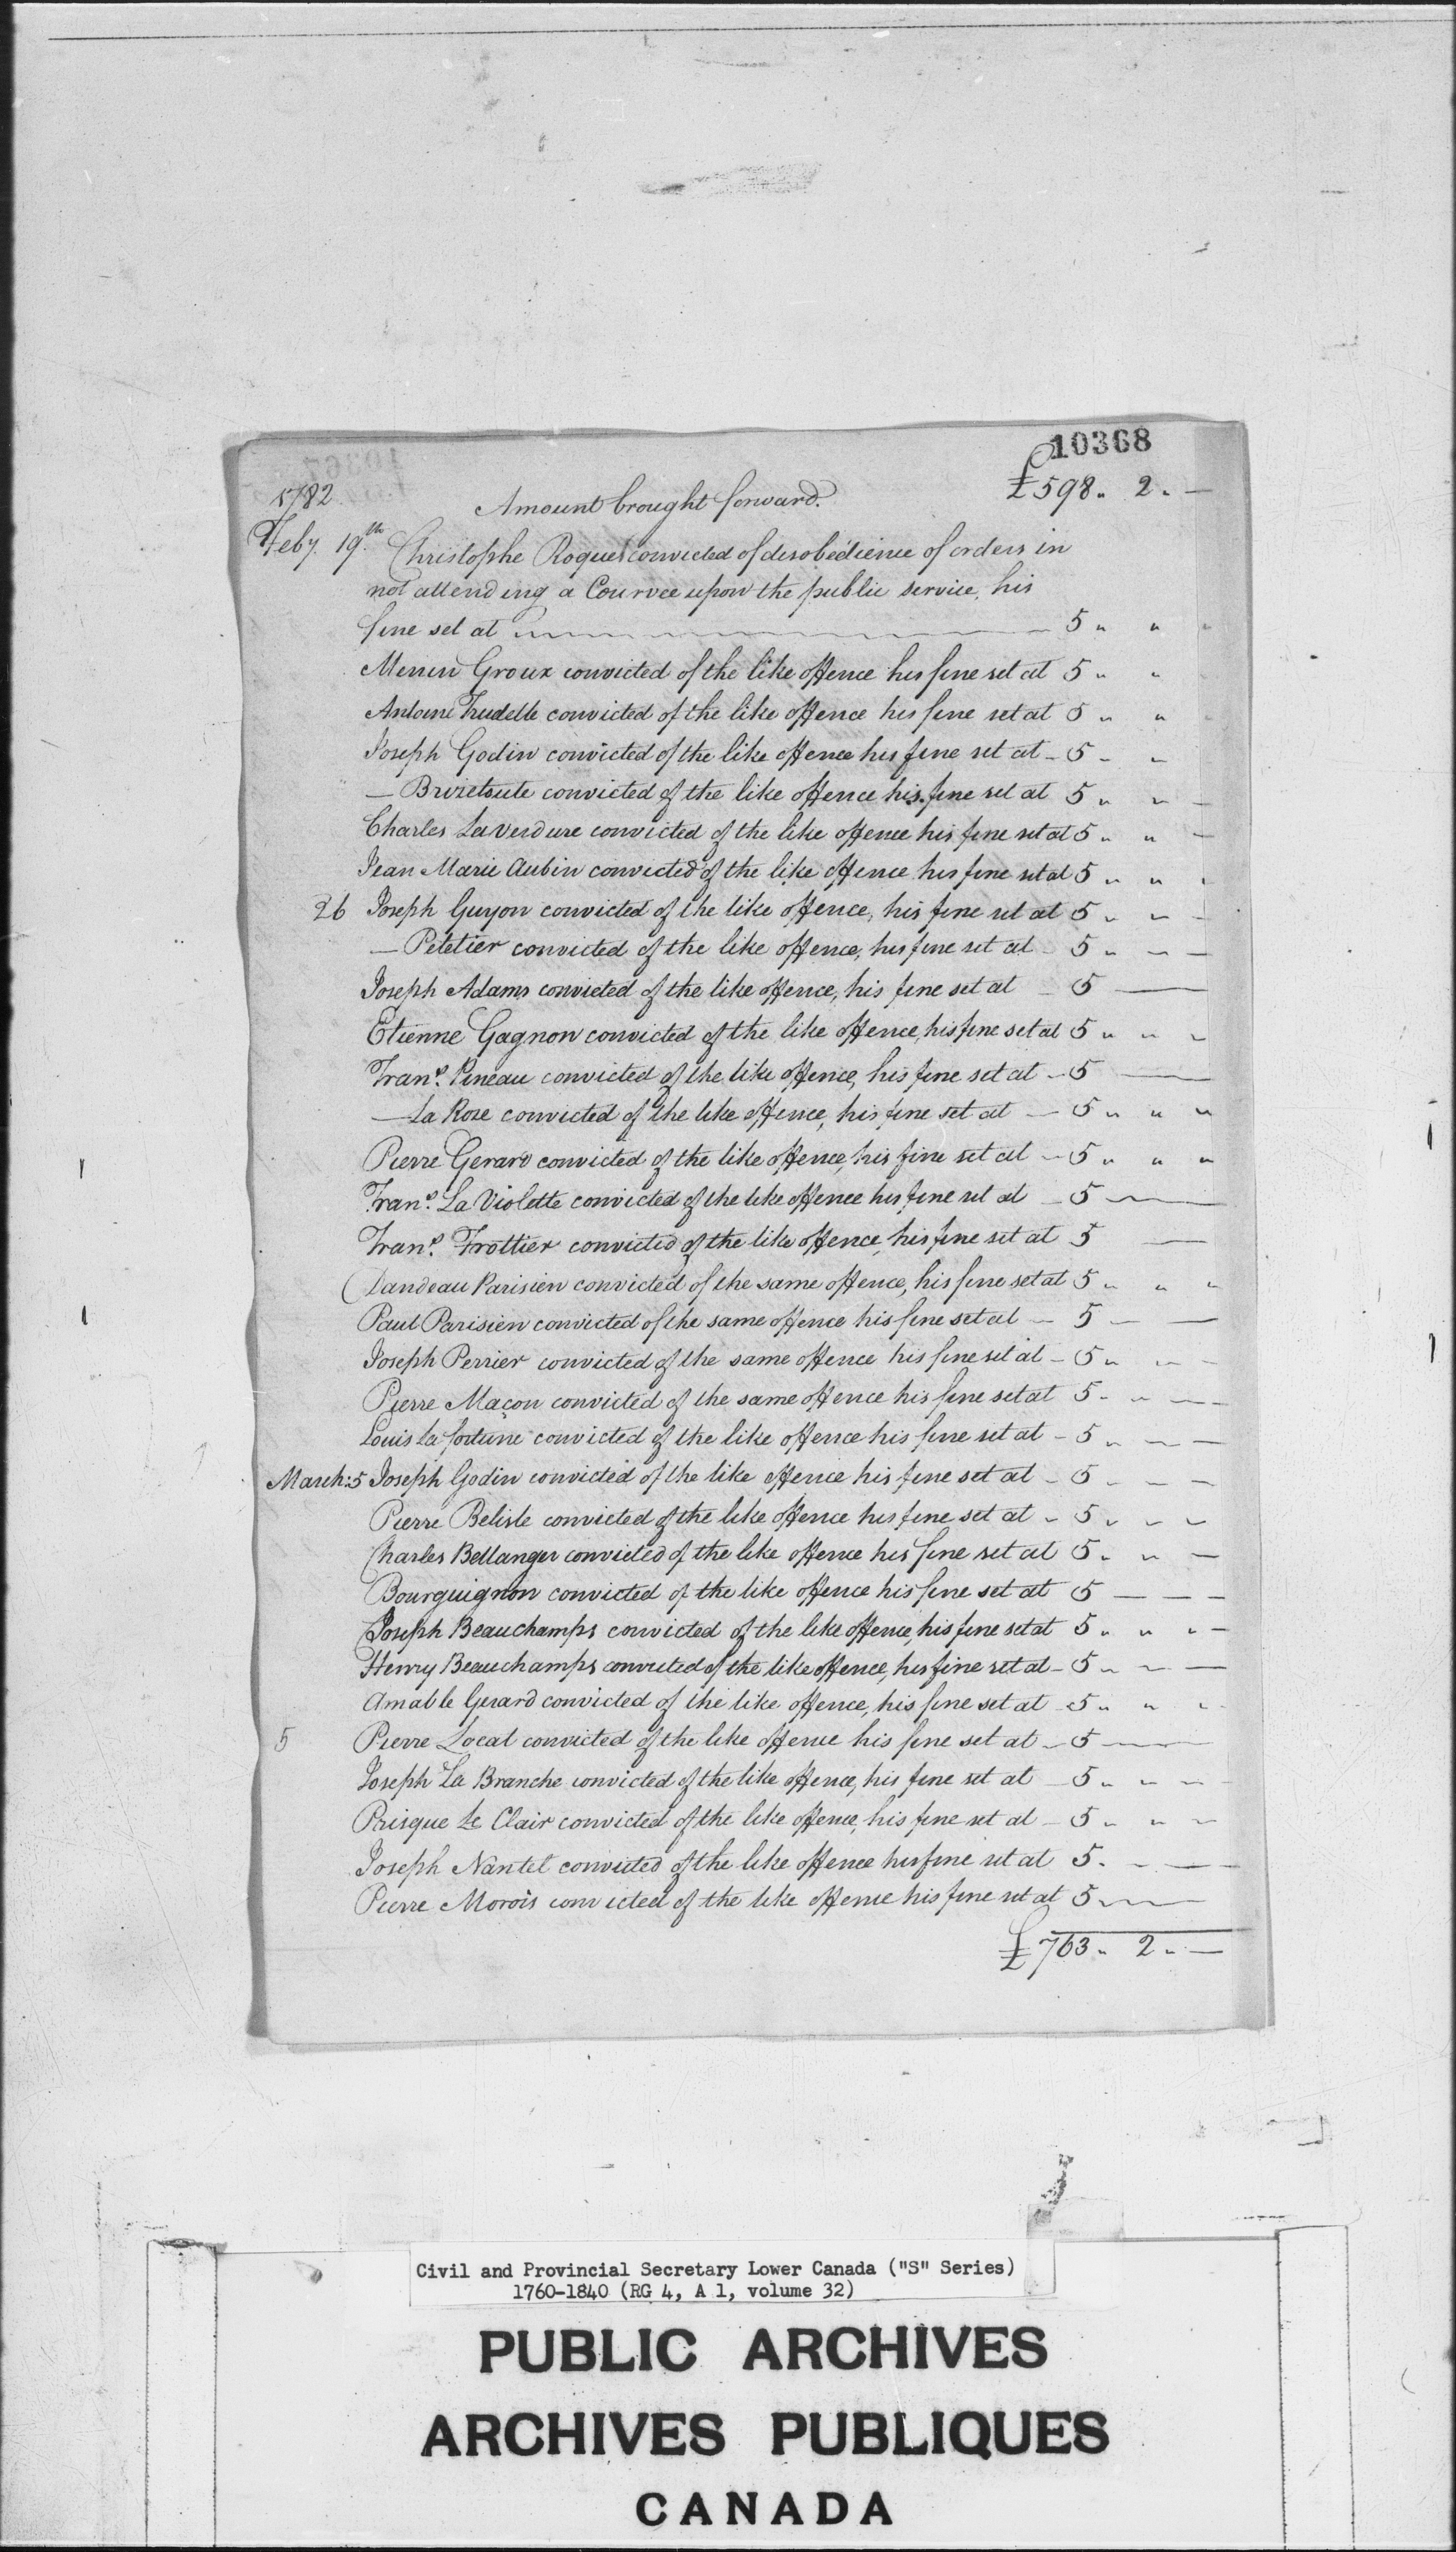 10368
£598 " 2 " —
1782
Amount brought forward.
Feby. 19th. Christophe Roques convicted of desobedience of orders in
not attending a Courvee upon the public service, his
fine set at 5 " " "
Groux convicted of the like offence his fine set at 5 " "
Antoine Trudelle convicted of the like offence his fine set at 5 " "
Joseph Godin convicted of the like offence his fine set at - 5 " "
— convicted of the like offence his fine set at 5 " " —
Charles LaVerdure convicted of the like offence his fine set at 5 " " —
Jean Marie Aubin convicted of the like offence his fine set at 5 " " "
26 Joseph Guyon convicted of the like offence, his fine set at 5 " " —
— Peletier convicted of the like offence, his fine set at - 5 " — —
Joseph Adams convicted of the like offence, his fine set at - 5 ——
Etienne Gagnon convicted of the like offence, his fine set at 5 " " "
Frans. Pineau convicted of the like offence, his fine set at - 5 ——
— La Rose convicted of the like offence, his fine set at — 5 " " "
Pierre Gerard convicted of the like offence, his fine set at - 5 " " "
Frans. La Violette convicted of the like offence his fine set at - 5 ——
Frans. Trottier convicted of the like offence, his fine set at 5 —
Dandeau Parisien convicted of the same offence, his fine set at 5 " " "
Paul Parisien convicted of the same offence his fine set at — 5 — —
Joseph Perrier convicted of the same offence his fine set at - 5 " " —
Pierre Maçon convicted of the same offence his fine set at 5 " " —
Louis La fortune convicted of the like offence his fine set at - 5 " — —
March: 5 Joseph Godin convicted of the like offence his fine set at - 5 — — —
Pierre Belisle convicted of the like offence his fine set at - 5 " " "
Charles Bellanger convicted of the like offence his fine set at 5 " " —
Bourguignon convicted of the like offence his fine set at 5 — — —
Joseph Beauchamps convicted of the like offence, his fine set at 5 " " " —
Henry Beauchamps convicted of the like offence, his fine set at - 5 " " —
Amable Gerard convicted of the like offence, his fine set at - 5 " " "
5 Pierre Local convicted of the like offence his fine set at - 5 ——
Joseph La Branche convicted of the like offence, his fine set at - 5 " " —
Prisque Le Clair convicted of the like offence, his fine set at - 5 " " "
Joseph Nantel convicted of the like offence his fine set at 5 . - ——
Pierre Morois convicted of the like offence his fine set at 5 ——
£763 " 2 " —
Civil and Provincial Secretary Lower Canada ("S" Series)
1760-1840 (RG 4, A 1, volume 32)
PUBLIC ARCHIVES
ARCHIVES PUBLIQUES
CANADA